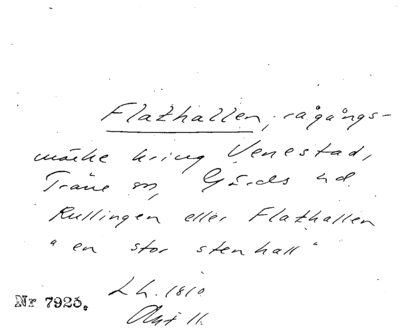 Flathallen, rågångs-
märke kring Venestad,
Träne sn, Gärds hd.
Rullingen eller Flathallen
"en stor stenhall"
Lh. 1810
Akt 11.
Nr 7925.